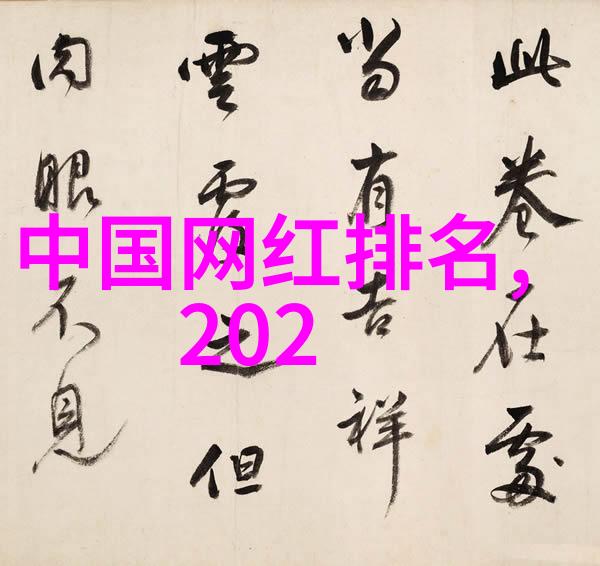 此卷在處
當有吉祥
雲覆之但
肉眼不見
中国网红排名,
202